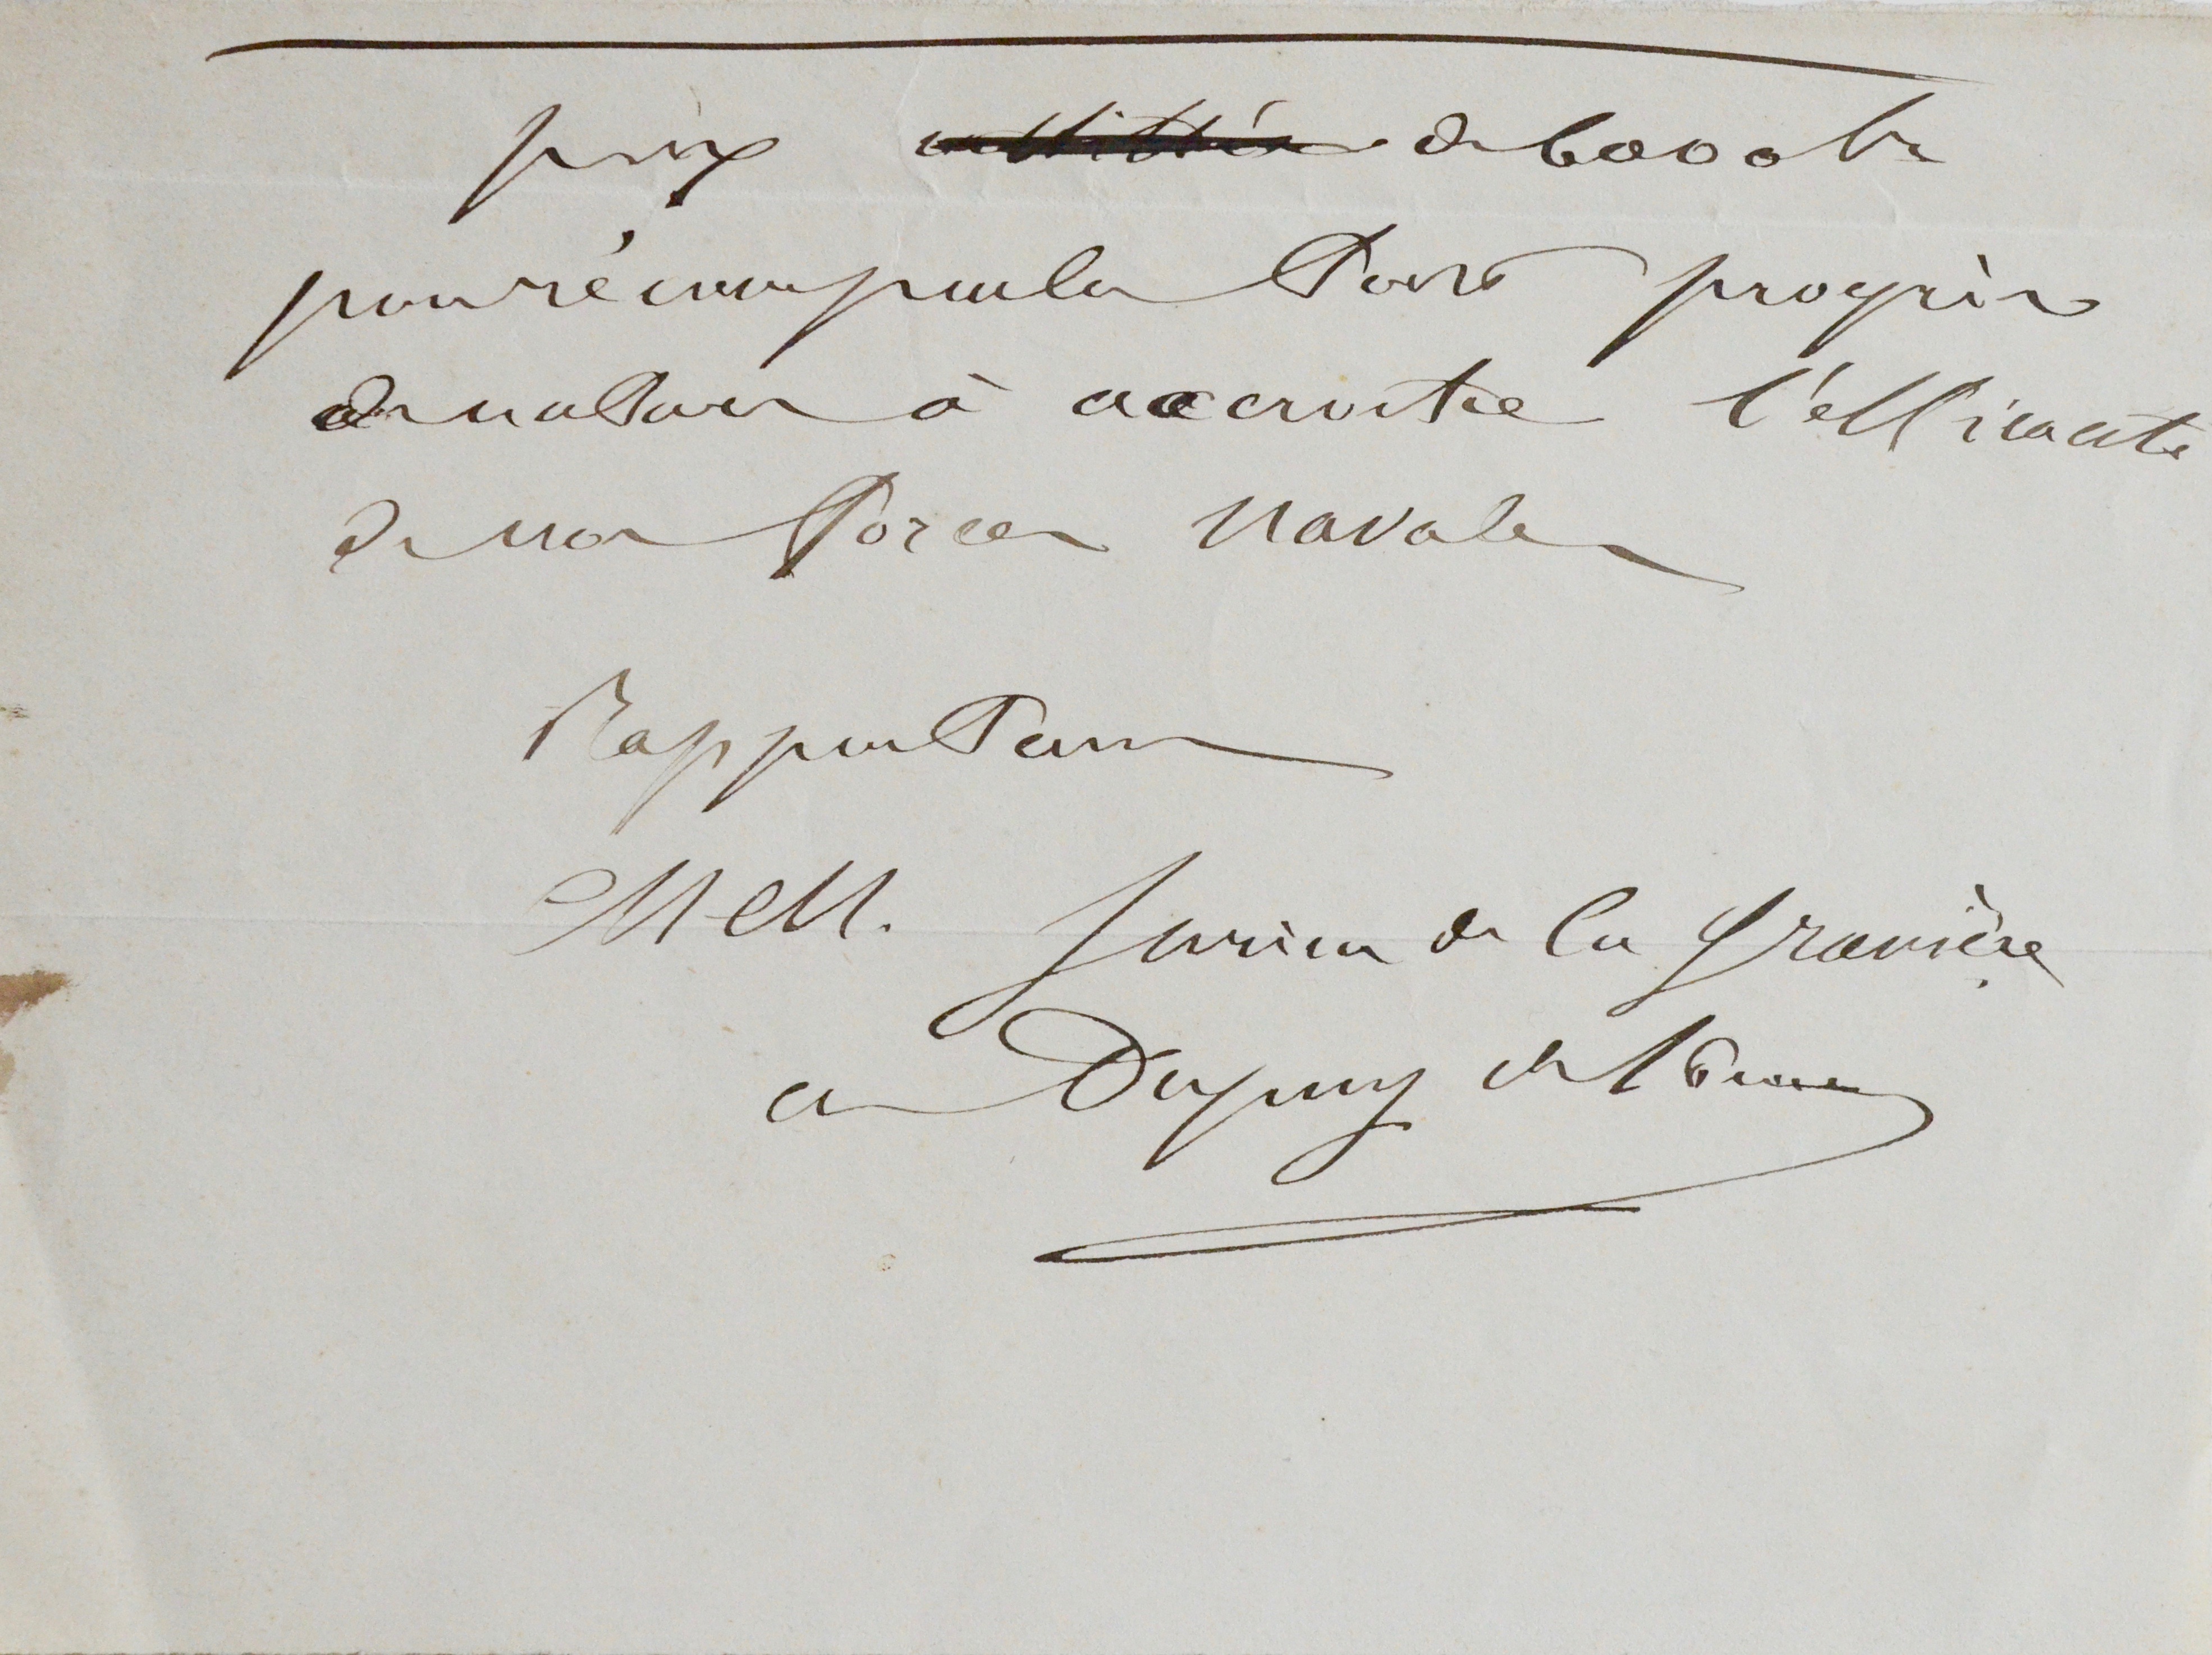 prix de 6000 fr
pour récompenser tout progrès
de nature à accroitre l'efficacité
de nos forces navales
Rapporteurs
MM. Jurien de la Gravière
et Dupuy de Lôme